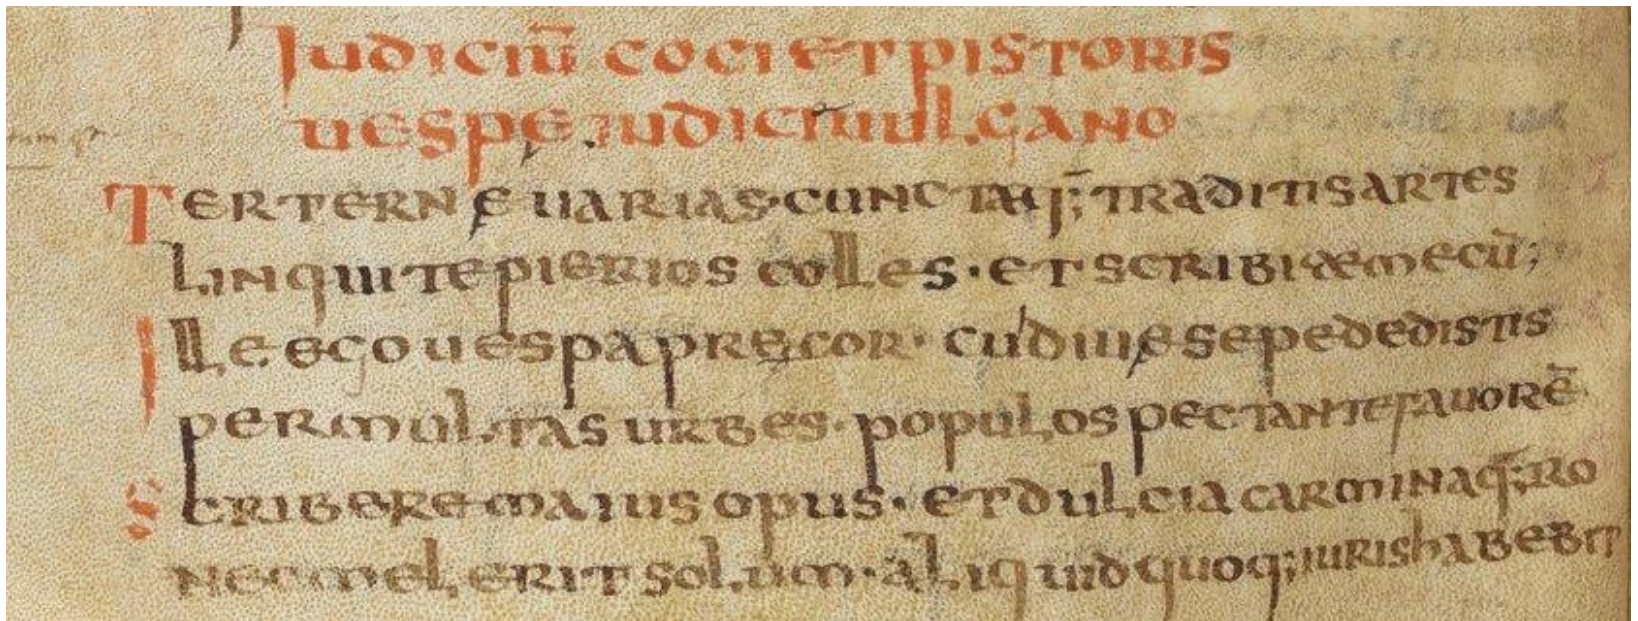 Iudiciū coci et pistoris
uespę iudici uulcano
Ter ternę uarias cunctaeq; traditis artes
Linquite pierios colles · et scribite mecū;
Ille ego uespa precor · cui diuę sepe dedistis
per multas urbes · populo spectante fauorē
Scribere maius opus · et dulcia carminaq; ro
nec mel erit solum · aliquid quoq; iuris habebit